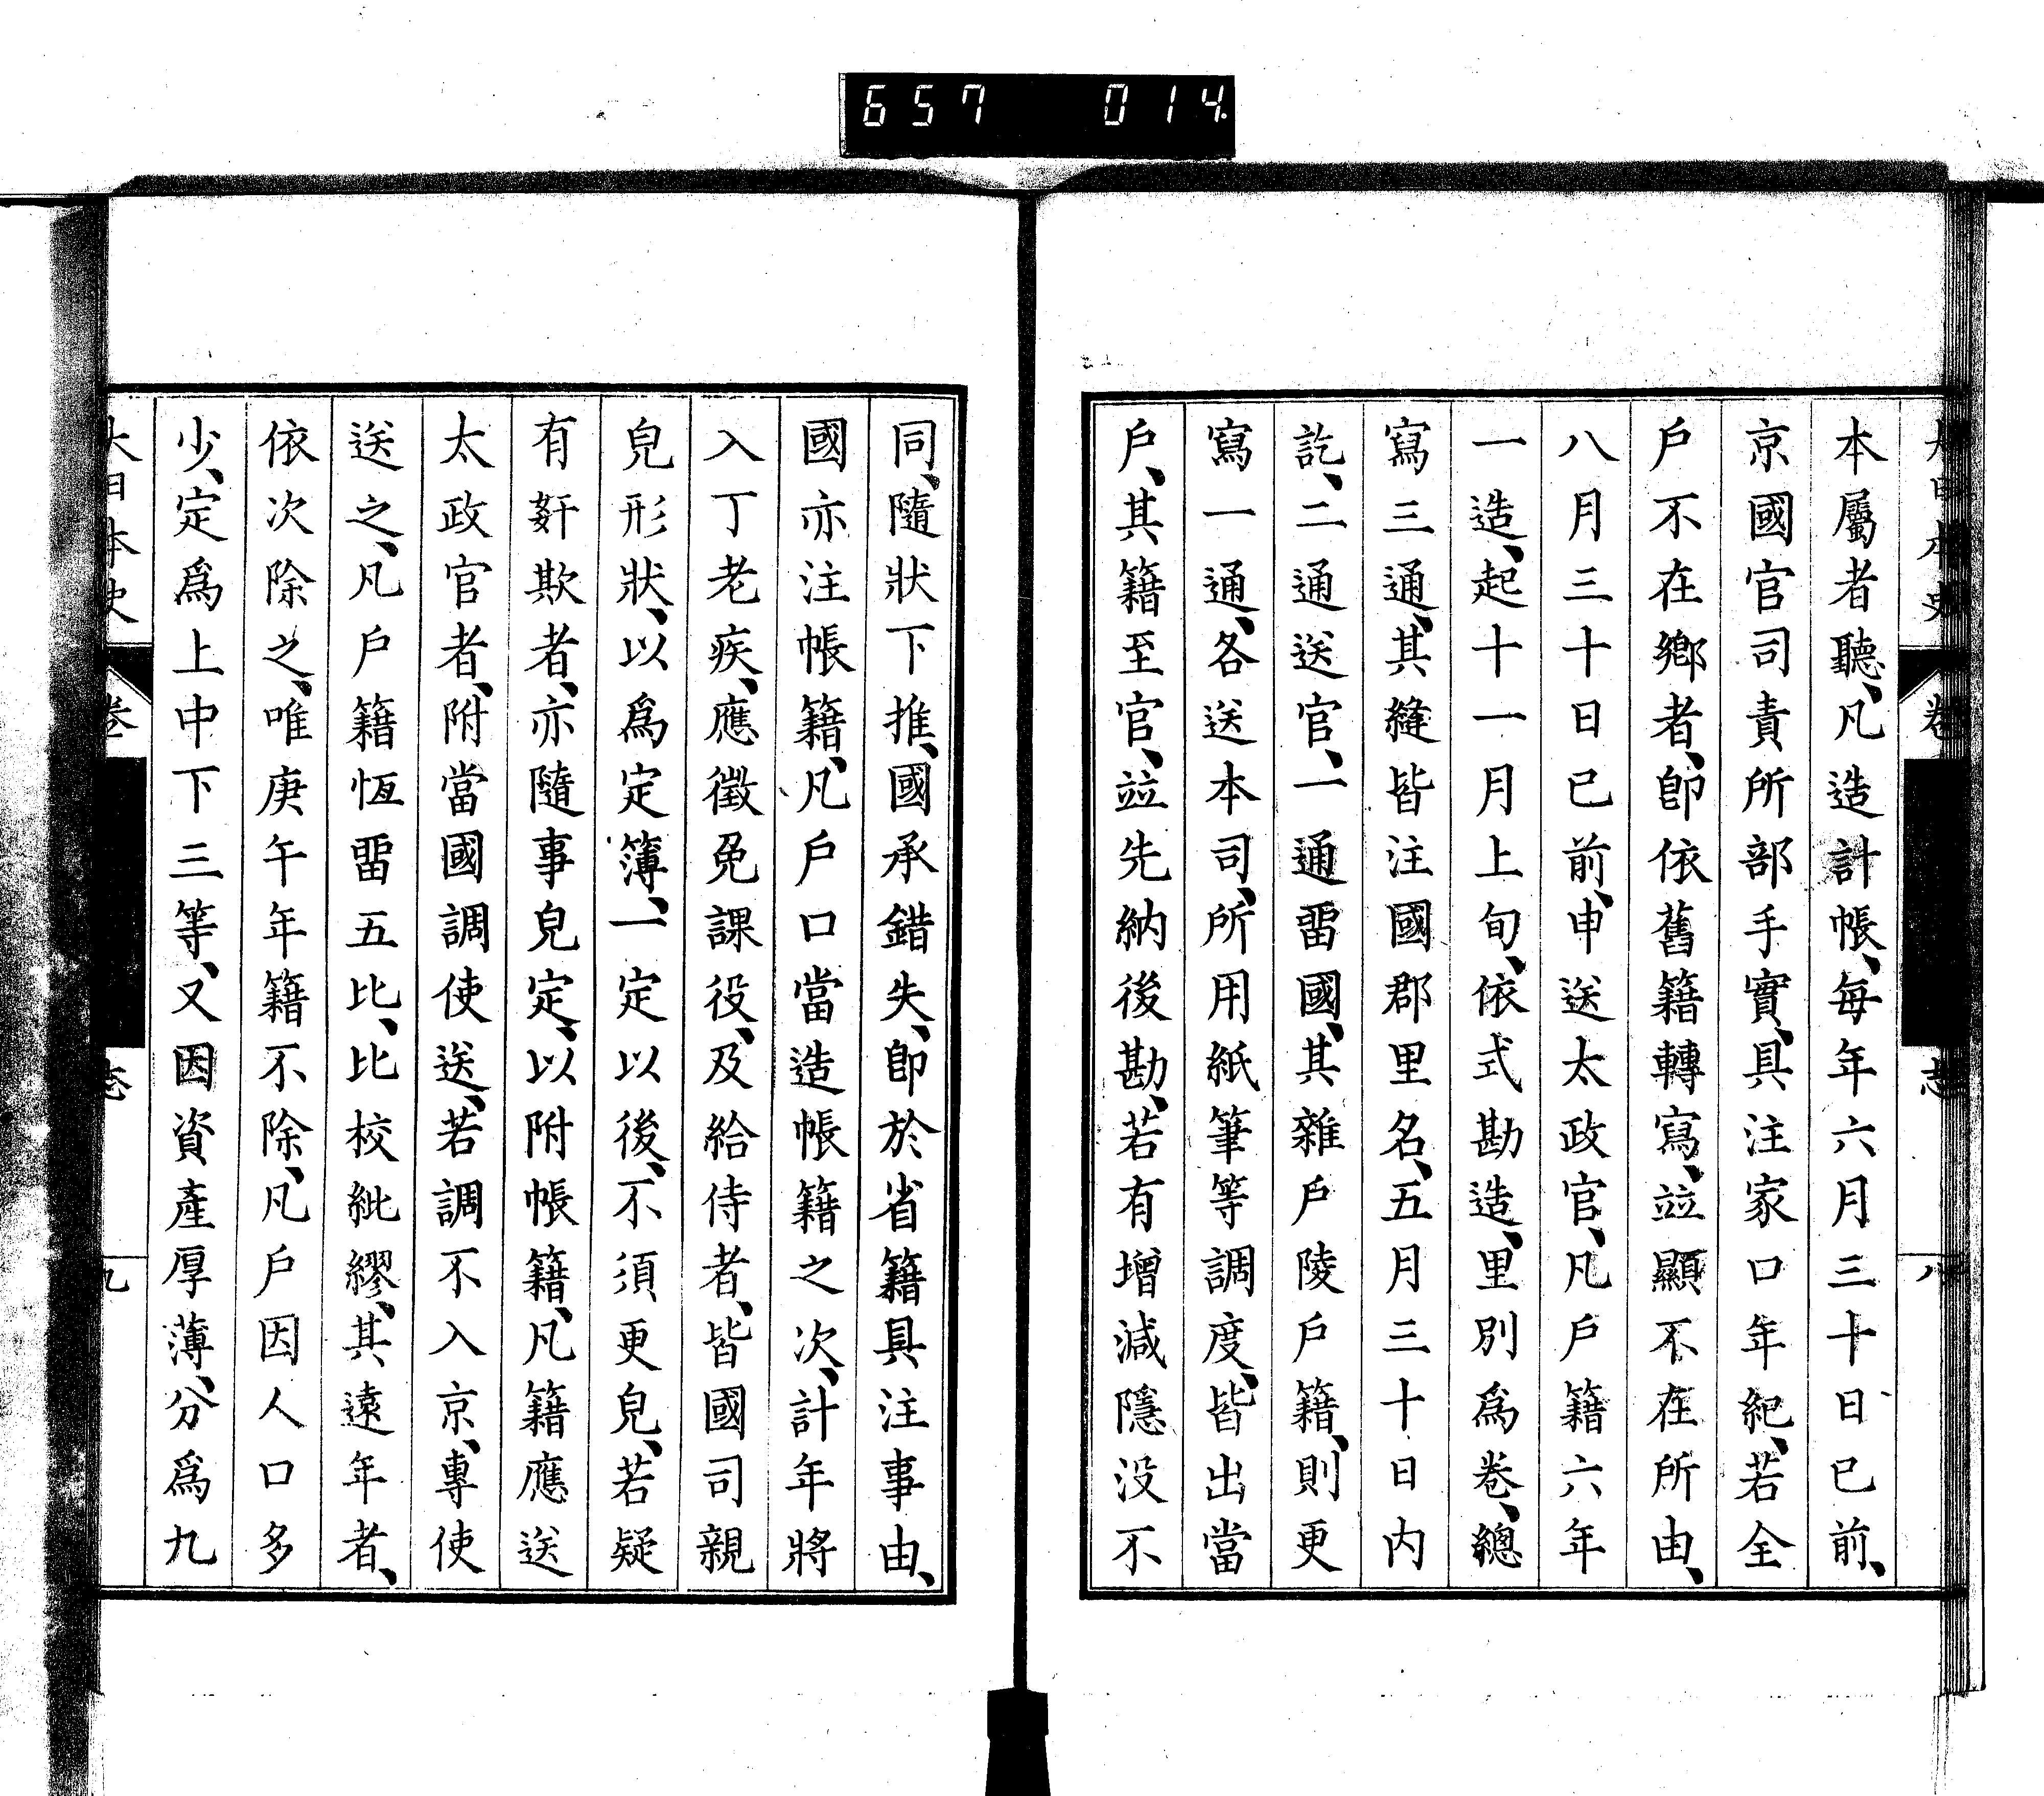 657 014
大日本史 卷 志 八
本屬者聽、凡造計帳、每年六月三十日已前、
京國官司責所部手實、具注家口年紀、若全
戶不在鄉者、卽依舊籍轉寫、竝顯不在所由、
八月三十日已前、申送太政官、凡戶籍六年
一造、起十一月上旬、依式勘造、里別爲卷、總
寫三通、其縫皆注國郡里名、五月三十日內
訖、二通送官、一通畱國、其雜戶陵戶籍、則更
寫一通、各送本司、所用紙筆等調度、皆出當
戶、其籍至官、竝先納後勘、若有增減隱沒不
同、隨狀下推、國承錯失、卽於省籍具注事由、
國亦注帳籍、凡戶口當造帳籍之次、計年將
入丁老疾、應徵免課役、及給侍者、皆國司親
皃形狀、以爲定簿、一定以後、不須更皃、若疑
有姧欺者、亦隨事皃定、以附帳籍、凡籍應送
太政官者、附當國調使送、若調不入京、專使
送之、凡戶籍恆畱五比、比校紕繆、其遠年者、
依次除之、唯庚午年籍不除、凡戶因人口多
少、定爲上中下三等、又因資產厚薄、分爲九
大日本史 卷 志 九